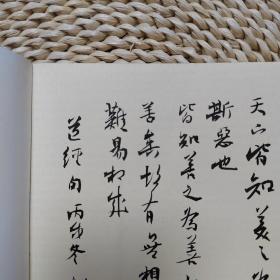 天下皆知美之
斯恶也
皆知善之為善
善矣故有無相
難易相成
道經句丙戌冬